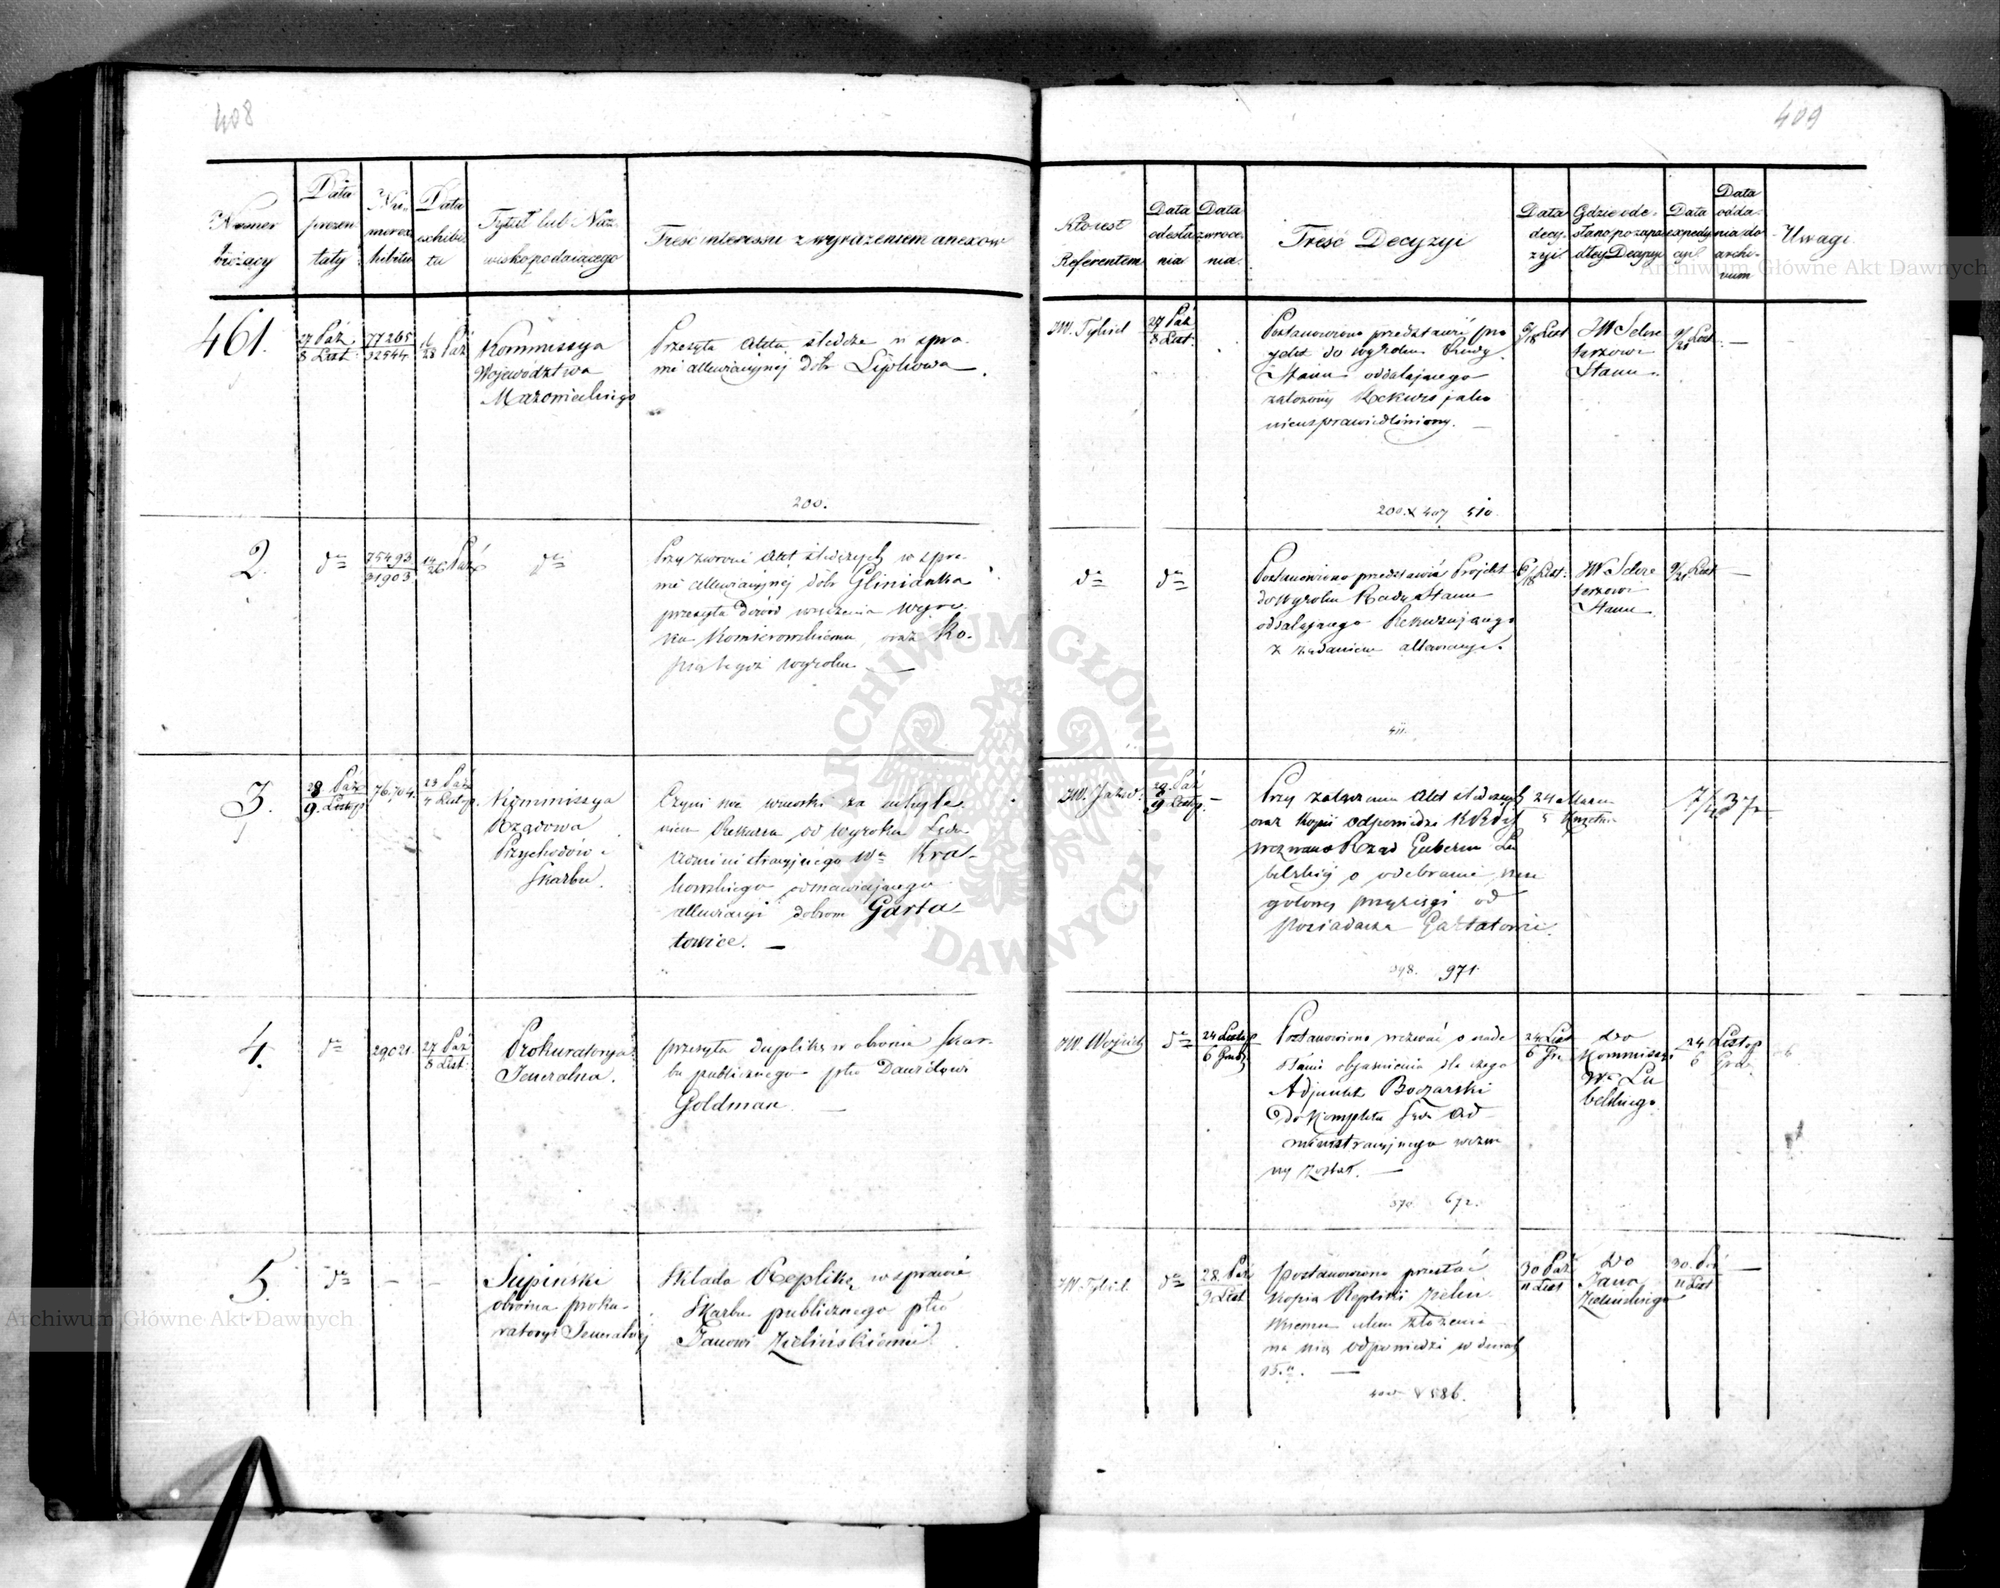 408
Numer
bieżący
Data
prezen
taty
Nu-
merex
hibitu
Data
exhibi-
tu
Tytuł lub Naz-
wisko podającego
Treść interessu z wyrażeniem anexów
461.
27 Paź
8 List
77265
32544
16
28 Paź
Kommissya
Województwa
Mazowieckiego
Przesyła akta śledcze w spra-
wie alluwiacyjnej dóbr Lipkowa.
200.
2.
do
75493
31903
14
26 Paź
do
Przy zwrocie Akt śledczych w spra-
wie alluwiacyjnej dóbr Glinianka
przesyła dowód wręczenia wyro-
ku Komierowskiemu, oraz Ko-
pią tegoż wyroku. —
3.
28 Paź
9. Listop
76,704.
23 Paź
4 Listop.
Kommissya
Rządowa
Przychodów i
Skarbu.
Czyni swe wnioski za uchyle-
niem Rekursu od wyroku Sądu
Administracyjnego Wa Kra-
kowskiego odmawiającego
alluwiacyi dobrom Garta-
towice. —
4.
do
29021.
27 Paź
8 List:
Prokuratorya
Jeneralna.
przesyła duplikę w obronie Skar-
bu publicznego pko Dawidowi
Goldman. —
5.
do
— —
Łupiński
obrońca proku-
ratoryi Jeneralnej
Składa Replikę w sprawie
Skarbu publicznego pko
Janowi Zielińskiemu.
409
Kto iest
Referentem
Data
odesła
nia
Data
zwróce-
nia.
Treść Decyzyi
Data
decy-
zyi
Gdzie ode-
słano po zapa
dłey Decyzyi
Data
expedy
cyi
Data
odda-
nia do
archi-
wum
Uwagi
JW. Tykiel
27 Paź
8 List:
Postanowiono przedstawić pro
jekt do wyroku Rady
Stanu oddalającego
założony Rekurs jako
nieusprawiedliwiony. —
200. x 407 510.
6/18 List
JW Sekre
tarzowi
Stanu.
9/21 List.
—
do
do
Postanowiono przedstawić Projekt
do wyroku Rady Stanu
oddalającego Rekurującego
z żądaniem alluwiacyi.
411.
6/18 List:
JW Sekre
tarzowi
Stanu.
9/21 List
—
JW. Jazw.
28 Paź
9 Listop.
—
Przy załączeniu Akt śledczych
oraz Kopii odpowiedzi
wezwano Rząd Gubern Lu
belskiej o odebranie
przysięgi od
posiadacza Gartatowic.
398. 971.
24 Marca
5 Kwietnia
JW. Wojcicki
do
24 Listop
6 Grud
Postanowiono wezwać o nade
słanie objaśnienia dla czego
Adjunkt Boczarski
do Kompletu Sądu Ad-
ministracyjnego wezwa
ny został. —
370. 672.
24 List
6 Gru
Do
Kommissyi
Wa Lu
belskiego
24 Listop
6 Grud.
JW. Tykiel.
do
28. Paź
9 List
postanowiono przesłać
Kopią Repliki Zieliń
skiemu celem złożenia
na nią odpowiedzi w dniach
15.u. —
586.
30 Paź
11 List
Do
Jana
Zielińskiego
30. Paź
11 List
—
Archiwum Główne Akt Dawnych
Archiwum Główne Akt Dawnych
ARCHIWUM GŁÓWNE AKT DAWNYCH